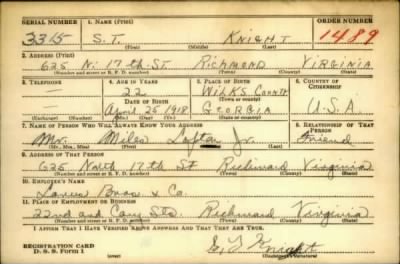 SERIAL NUMBER 1. NAME (Print) ORDER NUMBER
3315 S.T. KNIGHT 1489
(First) (Middle) (Last)
2. ADDRESS (Print)
625 N. 17th ST. RICHMOND VIRGINIA
(Number and street or R. F. D. number) (Town) (County) (State)
3. TELEPHONE 4. AGE IN YEARS 5. PLACE OF BIRTH 6. COUNTRY OF CITIZENSHIP
22 WILKS COUNTY
DATE OF BIRTH (Town or county)
April 25 1918 GEORGIA U.S.A.
(Exchange) (Number) (Mo.) (Day) (Yr.) (State or country)
7. NAME OF PERSON WHO WILL ALWAYS KNOW YOUR ADDRESS 8. RELATIONSHIP OF THAT PERSON
Mr. Miles Jr. Friend
(Mr., Mrs., Miss) (First) (Middle) (Last)
9. ADDRESS OF THAT PERSON
625 North 17th St Richmond Virginia
(Number and street or R. F. D. number) (Town) (County) (State)
10. EMPLOYER'S NAME
Bros & Co.
11. PLACE OF EMPLOYMENT OR BUSINESS
22nd and Cary Sts. Richmond Virginia
(Number and street or R. F. D. number) (Town) (County) (State)
I AFFIRM THAT I HAVE VERIFIED ABOVE ANSWERS AND THAT THEY ARE TRUE.
REGISTRATION CARD
D. S. S. Form 1 Knight
(Registrant's signature)